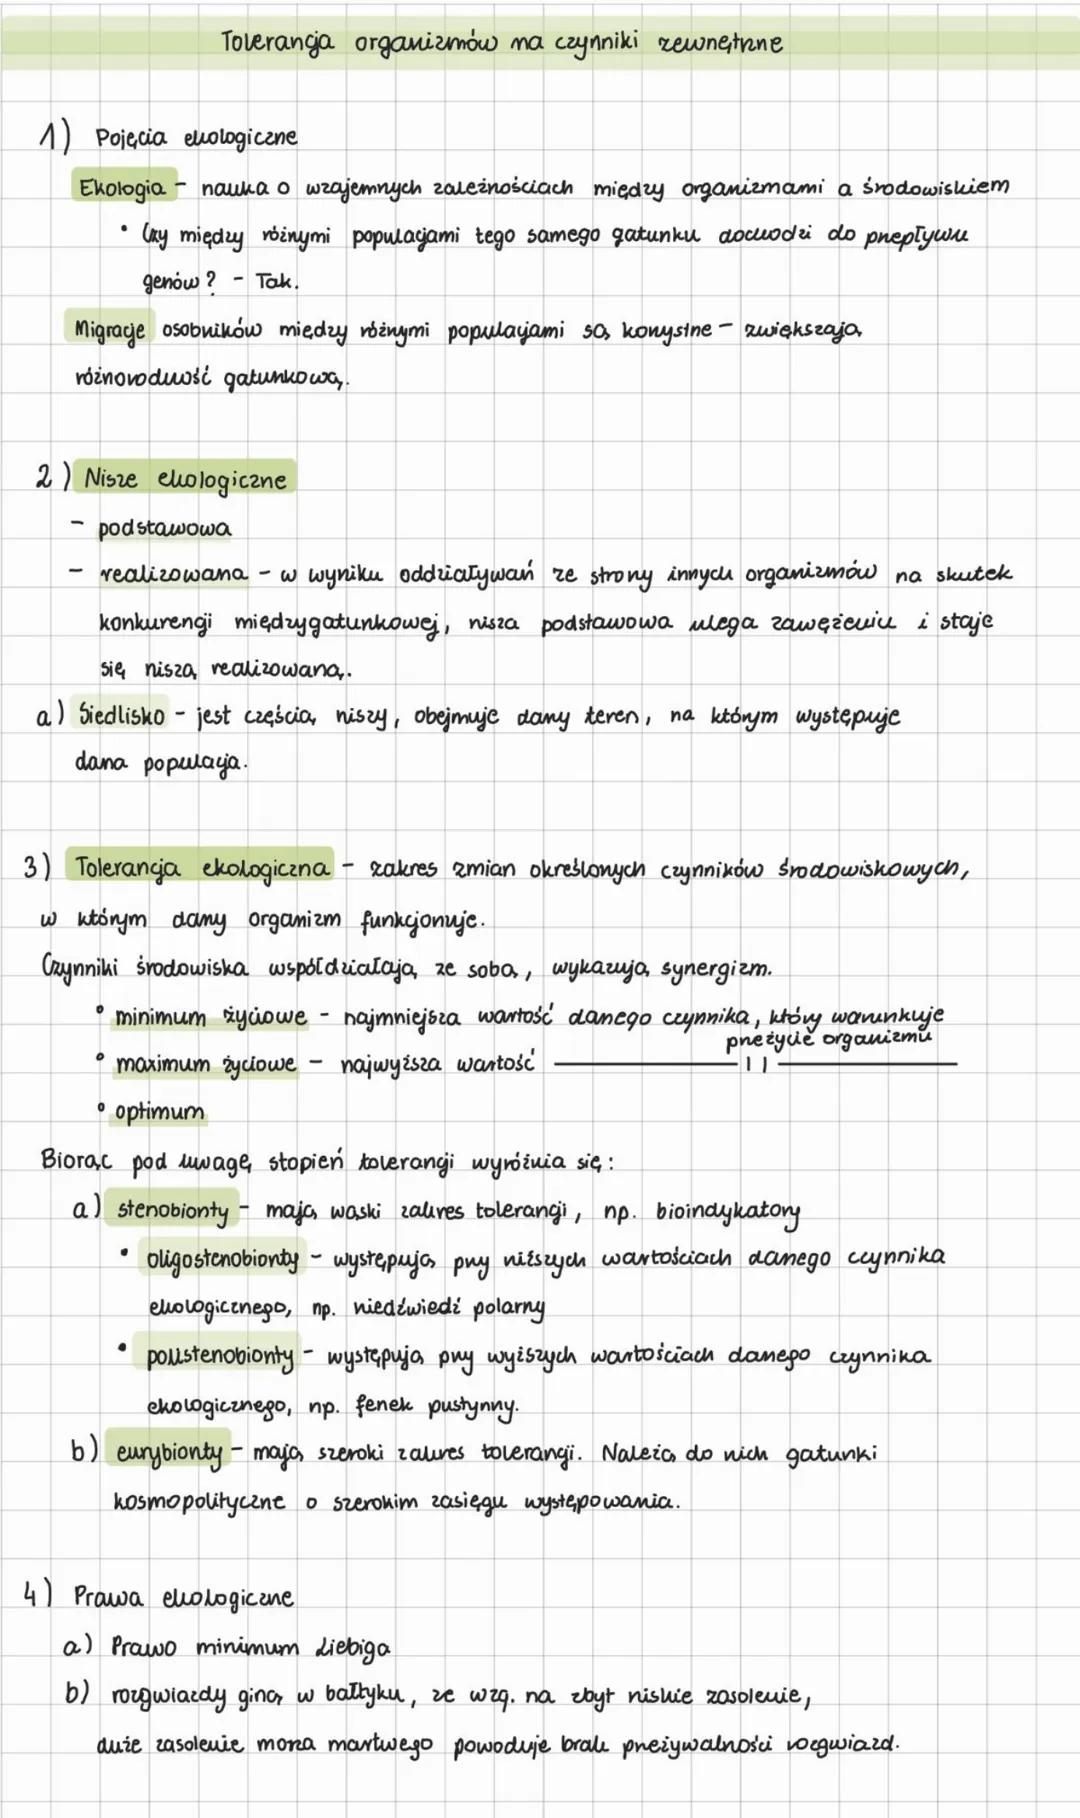 Tolerancja organizmów na czynniki zewnętrzne
1) Pojęcia ekologiczne
Ekologia - nauka o wzajemnych zależnościach między organizmami a środowiskiem
• Czy między różnymi populacjami tego samego gatunku dochodzi do przepływu
genów? - Tak.
Migracje osobników między różnymi populacjami są korzystne - zwiększają
różnorodność gatunkową.
2) Nisze ekologiczne
- podstawowa
- realizowana - w wyniku oddziaływań ze strony innych organizmów na skutek
konkurencji międzygatunkowej, nisza podstawowa ulega zawężeniu i staje
się niszą realizowaną.
a) Siedlisko - jest częścią niszy, obejmuje dany teren, na którym występuje
dana populacja.
3) Tolerancja ekologiczna - zakres zmian określonych czynników środowiskowych,
w którym dany organizm funkcjonuje.
Czynniki środowiska współdziałają ze sobą, wykazują synergizm.
° minimum życiowe - najmniejsza wartość danego czynnika, który warunkuje
przeżycie organizmu
° maximum życiowe - najwyższa wartość ——— 11 ———
° optimum
Biorąc pod uwagę stopień tolerancji wyróżnia się:
a) stenobionty - mają wąski zakres tolerancji, np. bioindykatory
• oligostenobionty - występują przy niższych wartościach danego czynnika
ekologicznego, np. niedźwiedź polarny
• polistenobionty - występują przy wyższych wartościach danego czynnika
ekologicznego, np. fenek pustynny.
b) eurybionty - mają szeroki zakres tolerancji. Należą do nich gatunki
kosmopolityczne o szerokim zasięgu występowania.
4) Prawa ekologiczne
a) Prawo minimum Liebiga
b) rozgwiazdy giną w bałtyku, ze wzg. na zbyt niskie zasolenie,
duże zasolenie morza martwego powoduje brak przeżywalności rozgwiazd.